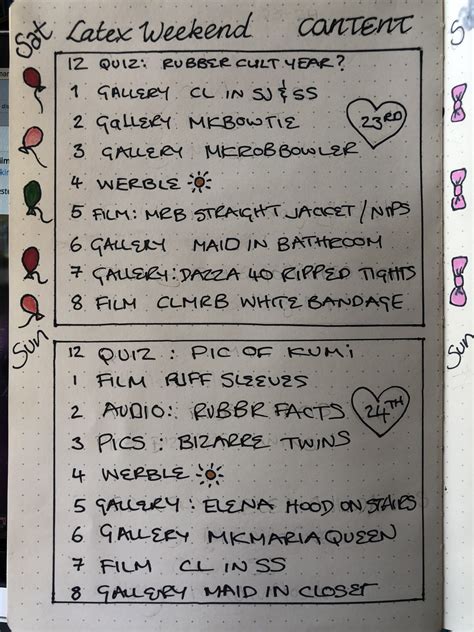 Sat Latex Weekend CONTENT
12 QUIZ: RUBBER CULT YEAR?
1 GALLERY CL IN SJ & SS
2 GALLERY MKBOWTIE
23RD
3 GALLERY MKROBBOWLER
4 WERBLE
5 FILM: MRB STRAIGHT JACKET/NIPS
6 GALLERY MAID IN BATHROOM
7 GALLERY: DAZZA 40 RIPPED TIGHTS
8 FILM CLMRB WHITE BANDAGE
Sun
12 QUIZ: PIC OF KUMI
1 FILM RIFF SLEEVES
2 AUDIO: RUBBR FACTS
24TH
3 PICS: BIZARRE TWINS
4 WERBLE
5 GALLERY: ELENA HOOD ON STAIRS
6 GALLERY MKMARIAQUEEN
7 FILM CL IN SS
8 GALLERY MAID IN CLOSET